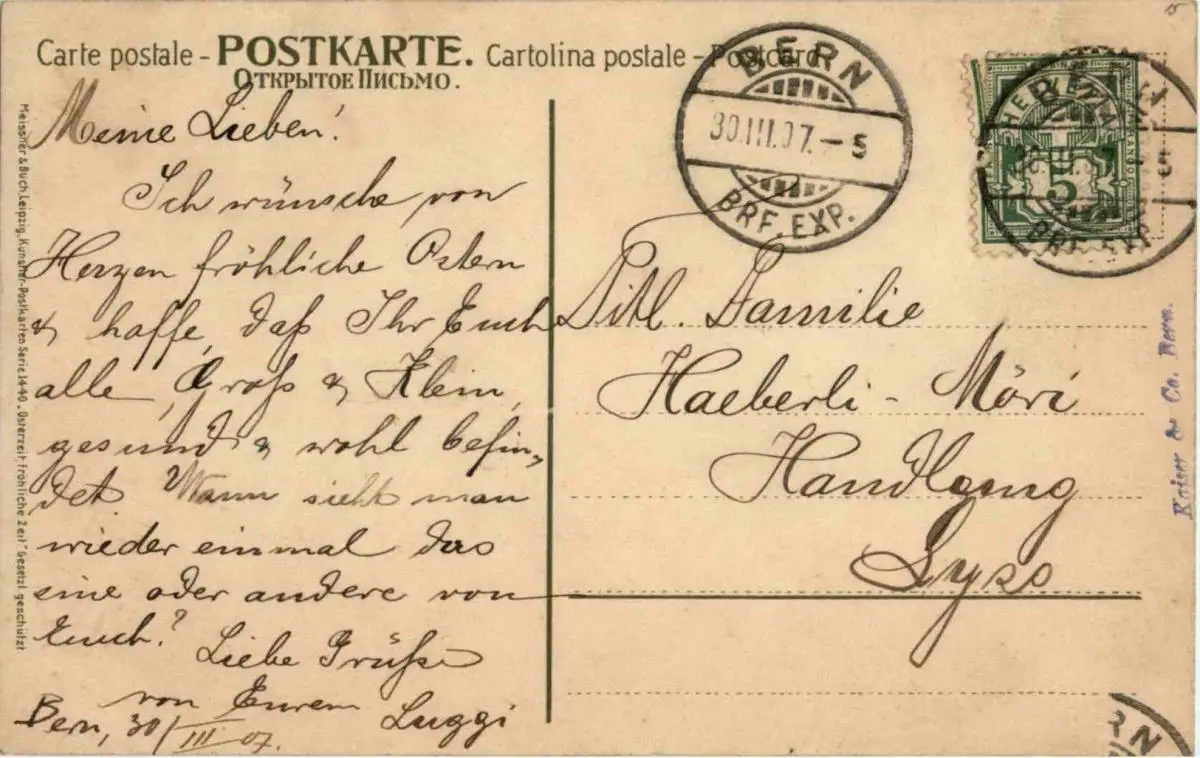 Carte postale - POSTKARTE. Cartolina postale - Postcard
ОТКРЫТОЕ ПИСЬМО.
Meine Lieben!
Ich wünsche von
Herzen fröhliche Ostern
& hoffe, daß Ihr Euch
alle, Groß & Klein,
gesund & wohl befin-
det. Wann sieht man
wieder einmal das
eine oder andere von
Euch?
Liebe Grüße
von Eurem Luggi
Bern, 30/III 07.
Meissner & Buch, Leipzig, Künstler-Postkarten Serie 1440 „Osterzeit fröhliche Zeit" Gesetzl. geschützt.
BERN
30.III.07. - 5
BRF. EXP.
HELVETIA
5
BERN
BRF. EXP.
Titl. Familie
Haeberli - Möri
Handlung
Lyss
Kaiser & Co. Bern.
RN